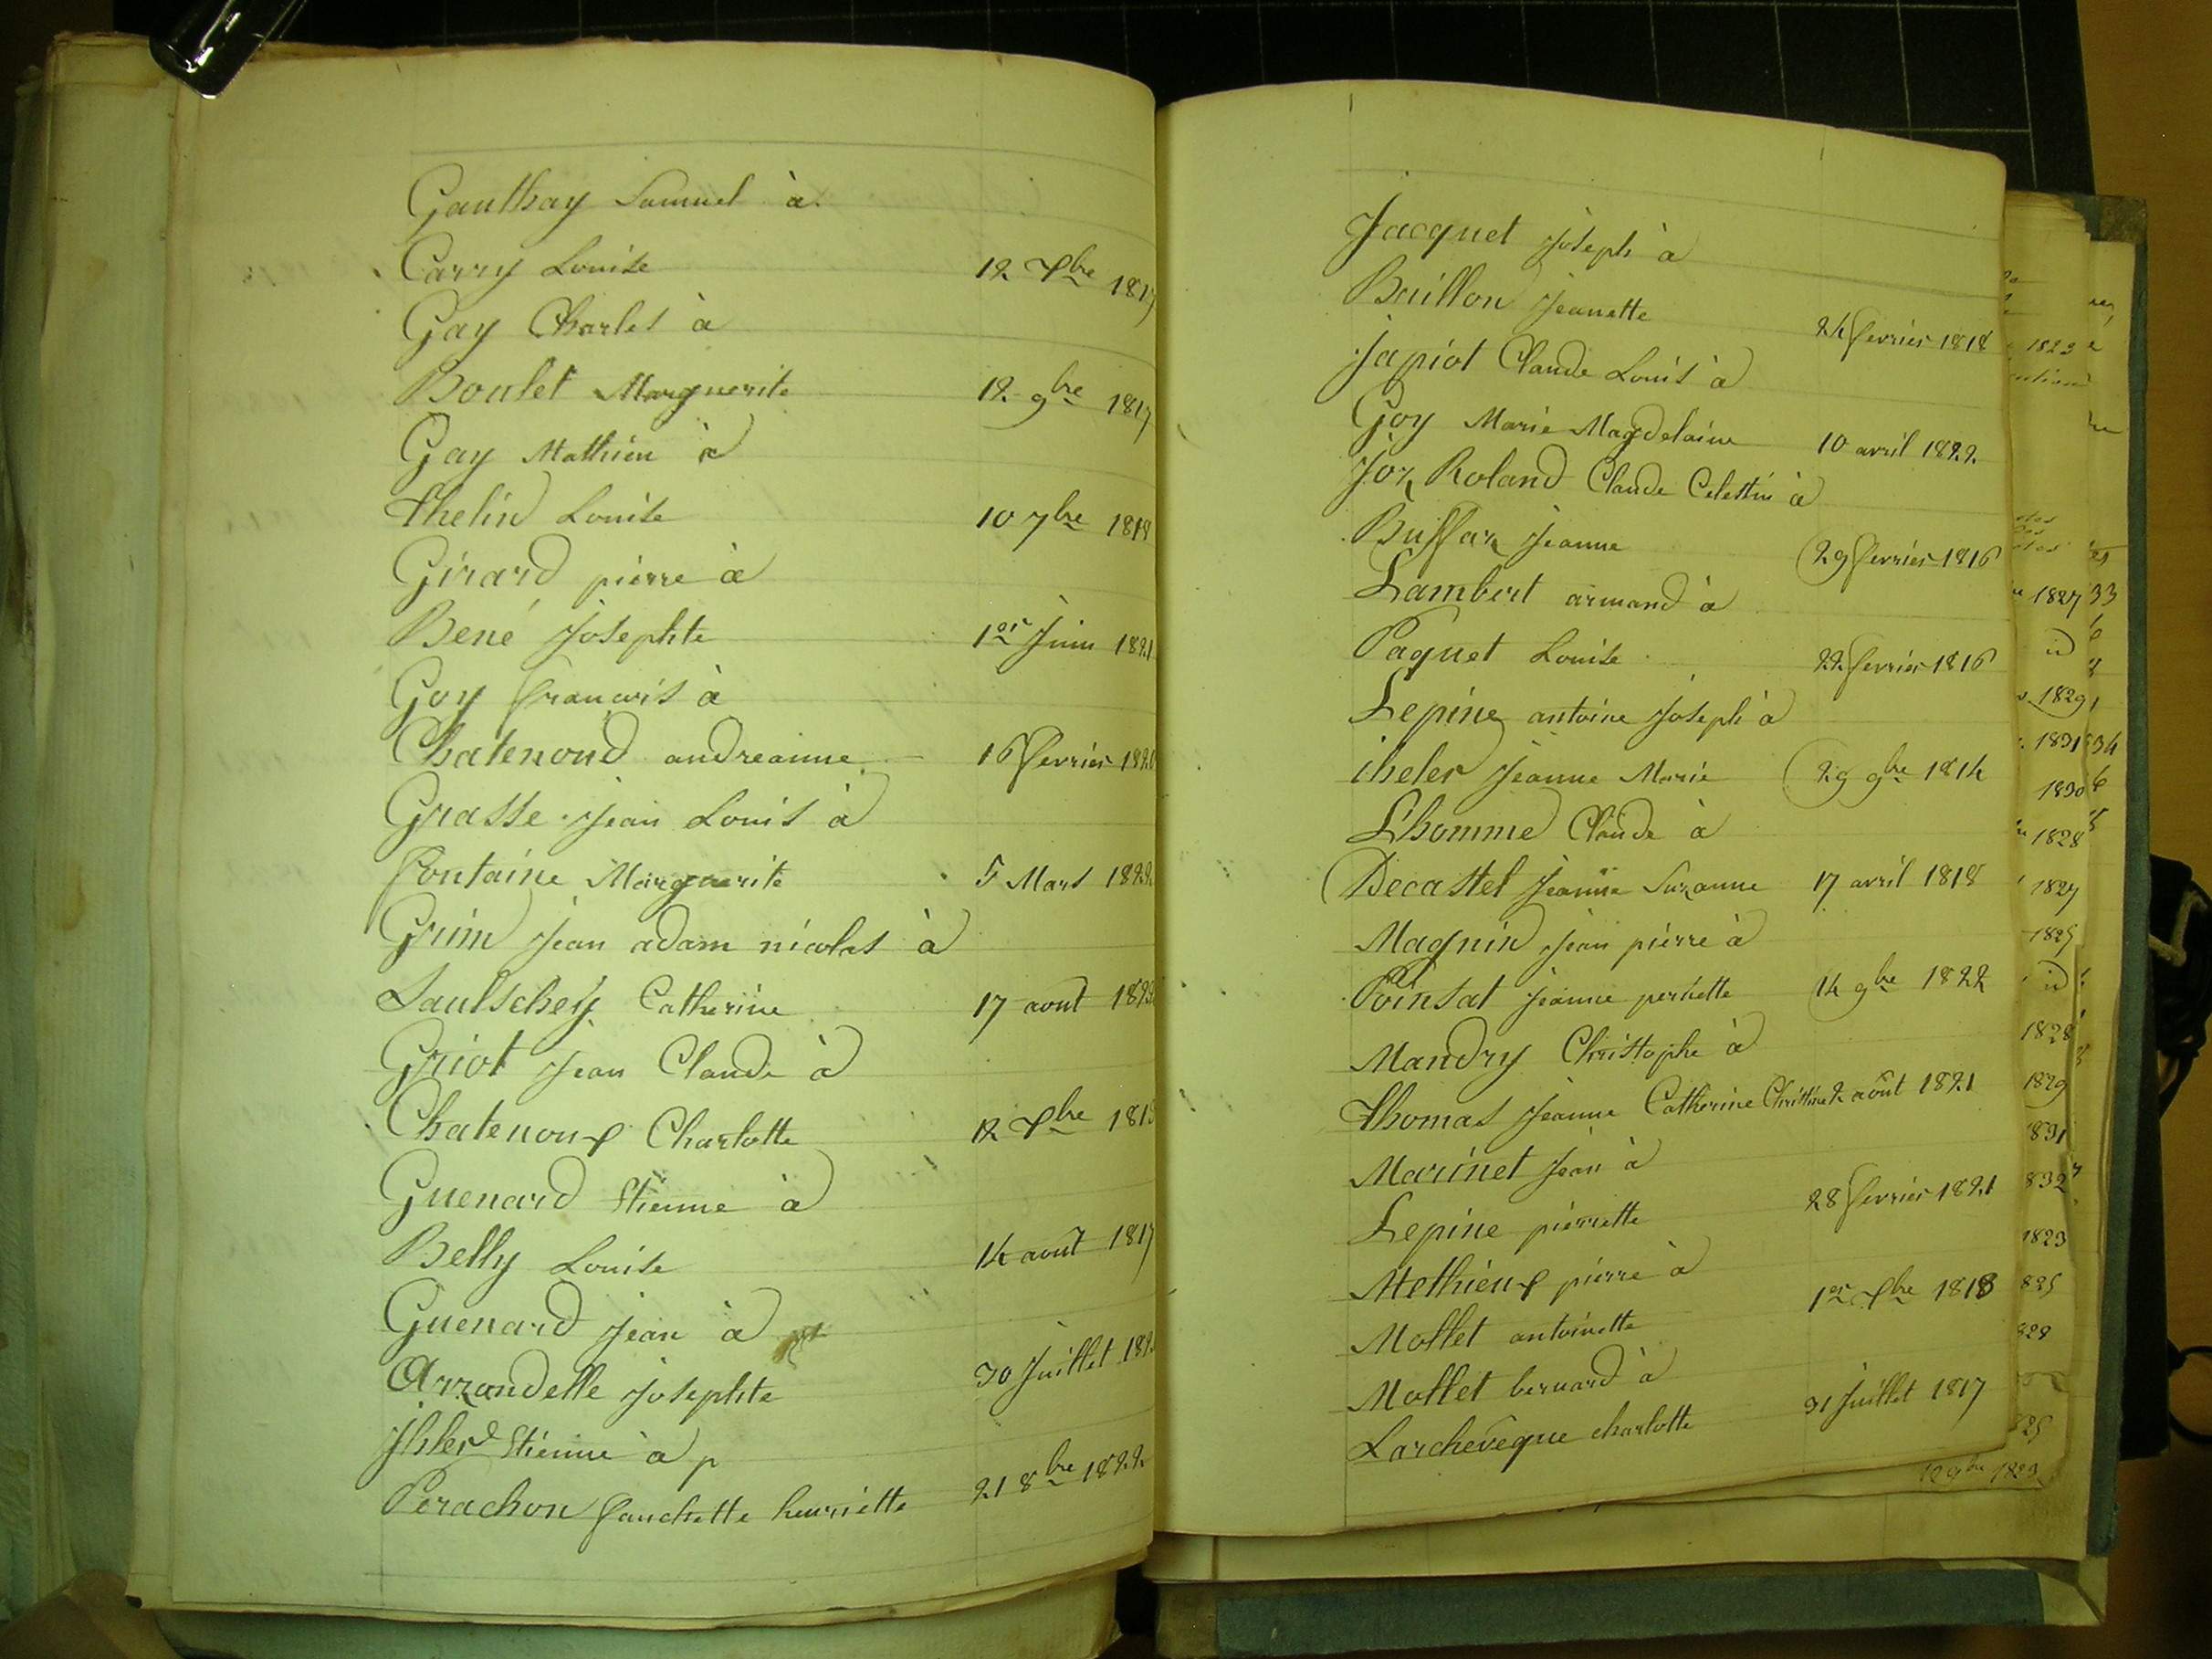 Gauthay Samuel à
Carry Louise 12 Xbre 1817
Gay Charles à
Boulet Marguerite 12 9bre 1817
Gay Mathieu à
thelin Louise 10 7bre 1818
Girard pierre à
Bené Josephte 1er Juin 1821
Goy francois à
Chatenoud andreanne 16 fevrier 182
Grasse Jean Louis à
fontaine Marguerite 5 Mars 1822
Grim Jean adam nicolas à
Saultschey Catherine 17 aout 182
Griot Jean Claude à
Chatenoux Charlotte 12 Xbre 181
Guenard Etienne à
Belly Louise 14 aout 1817
Guenard Jean à
Arrandelle Josephte 30 Juillet 182
Ihler Etienne à p
Perachon fanchette henriette 21 8bre 1822
Jacquet Joseph à
Baillon Jeanette 24 fevrier 1818
Japiot Claude Louis à
Goy Marie Magdelaine 10 avril 1822
Joz Roland Claude Celestin à
Buffaz Jeanne 29 fevrier 1816
Lambert armand à
Paquet Louise 22 fevrier 1816
Lepine antoine Joseph à
iheler Jeanne Marie 29 9bre 1814
L'homme Claude à
Decastel Jeanne Suzanne 17 avril 1818
Magnin Jean pierre à
Poinsat Jeanne pernette 14 9bre 1822
Mandry Christophe à
thomas Jeanne Catherine Christine 2 août 1821
Marinet Jean à
Lepine pierrette 28 fevrier 1821
Methieux pierre à
Mollet antoinette 1er Xbre 1818
Mollet bernard à
Larcheveque charlotte 31 Juillet 1817
1823
1827 33
id
1829
1831 34
1830
1828
1827
1825
id
1828
1829
1831
832
1823
825
828
825
1823